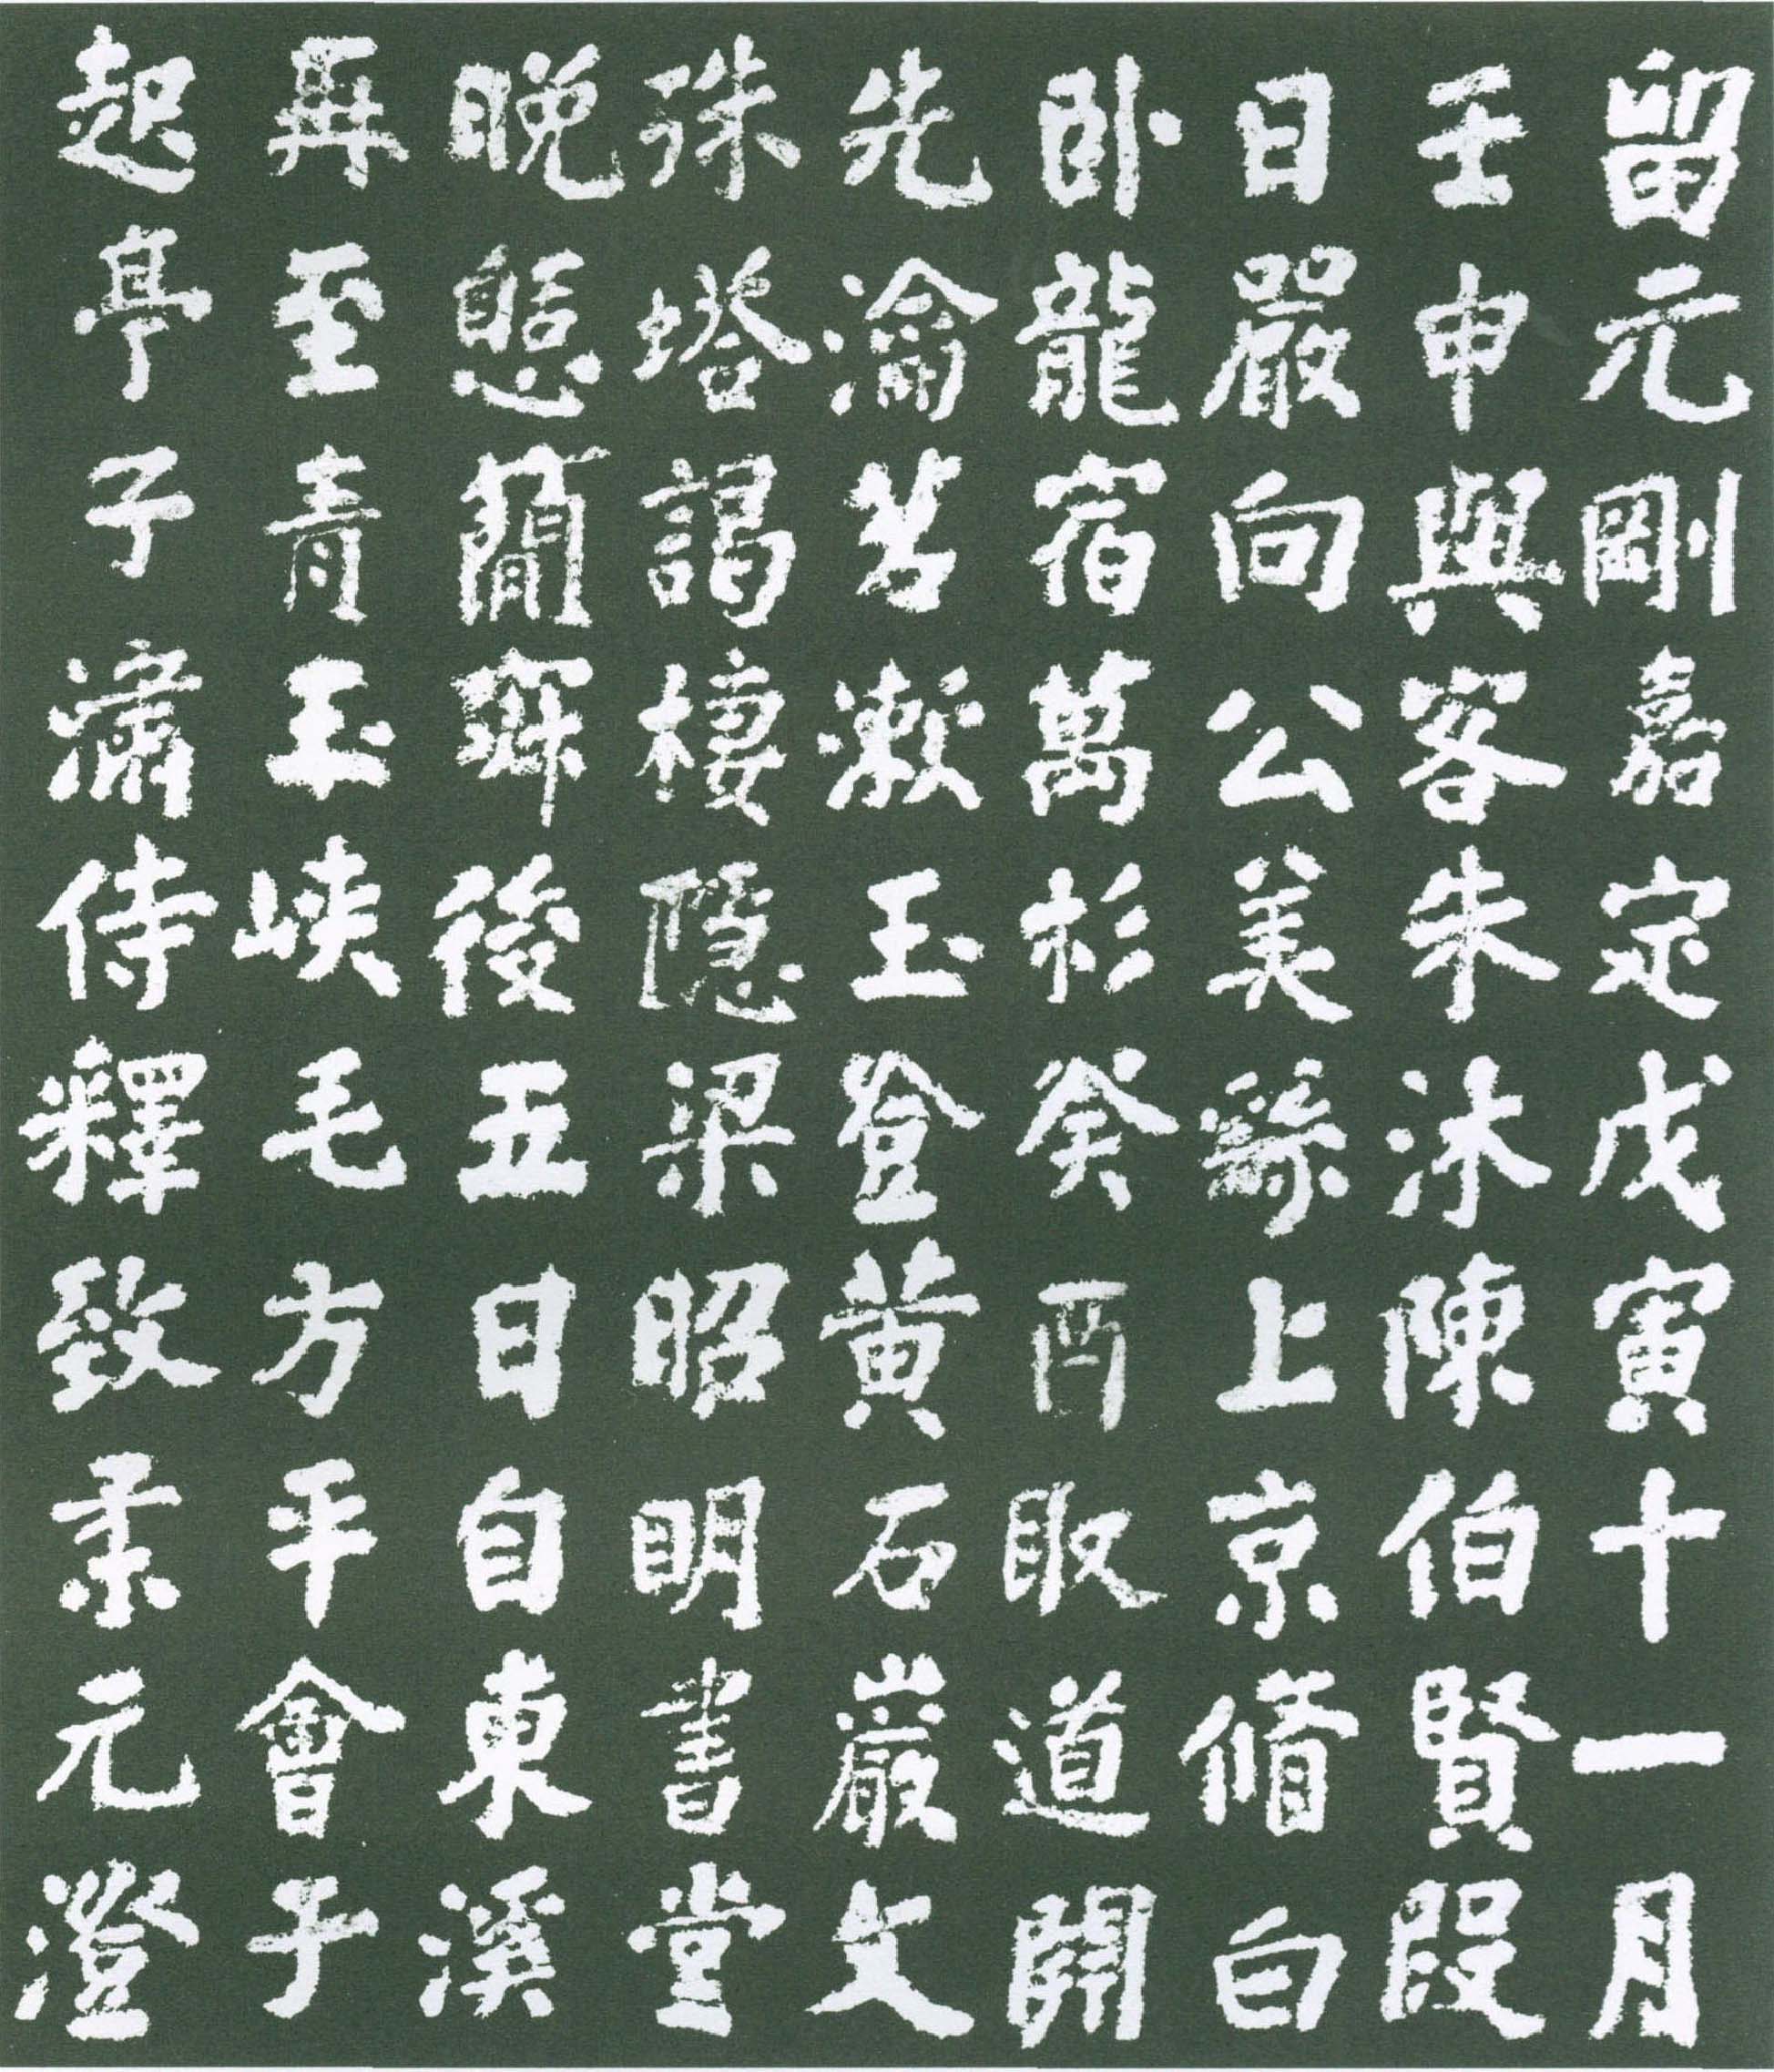 留元剛嘉定戊寅十一月
壬申與客朱沐陳伯賢段
日嚴向公美繇上京脩白
臥龍宿萬杉癸酉取道開
先瀹茗漱玉登黃石巖文
殊塔謁棲隱梁昭明書堂
晚憩簡寂後五日自東溪
再至青玉峽毛方平會于
起亭子潚侍釋致柔元澄